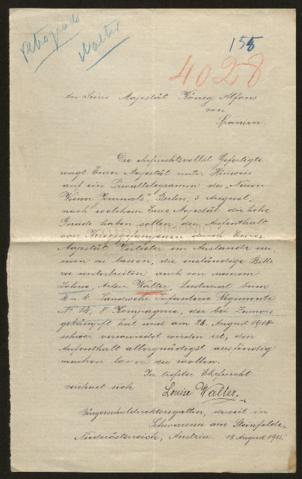 petrograd
Walter
155
4028
An Seine Majestät König Alfons
von
Spanien.
Die ehrfurchtsvollst Gefertigte
wagt Eurer Majestät unter Hinweis
auf ein Privattelegramm des "Neuen
Wiener Journals", Berlin, 3 August,
nach welchem Eure Majestät die hohe
Gnade haben sollen, den Aufenthalt
von Kriegsgefangenen durch Eurer
Majestät Vertreter im Auslande
zu lassen, die inständige Bitte
zu unterbreiten auch von meinem
Sohne, Walter, beim
k. u. k. Landwehr Infanterie Regimente
No 14, 8 Kompagnie, der bei Zamosc
gekämpft hat und am 28. August 1914
schwer verwundet worden ist, den
Aufenthalt allergnädigst ausfindig
machen lassen zu wollen.
In tiefster Ehrfurcht
zeichnet sich
Louise Walter,
Bürgerschuldirektorsgattin, derzeit in
Schwarzau am Steinfelde
Niederösterreich, Austria 13 August 1915.